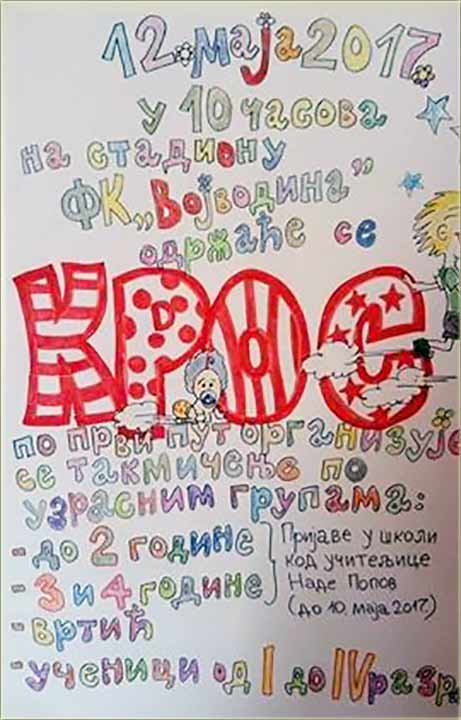 12. маја 2017.
у 10 часова
на стадиону
ФК „Војводина”
одржаће се
КРОС
по први пут организује
се такмичење по
узрасним групама:
-до 2 године
-3 и 4 године
Пријаве у школи
код учитељице
Наде Попов
(до 10. маја 2017.)
-вртић
-ученици од I до IV разр.